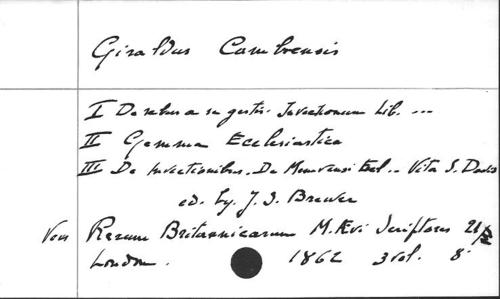 Giraldus Cambrensis
I De rebus a se gestis. Invectionum Lib. ...
II Gemma Ecclesiastica
III De Invectionibus. De Menevensi Eccl.. Vita S. Davis
ed. by. J. S. Brewer
Rerum Britannicarum M. Ævi Scriptores 21
London. 1862 3 vol. 8°